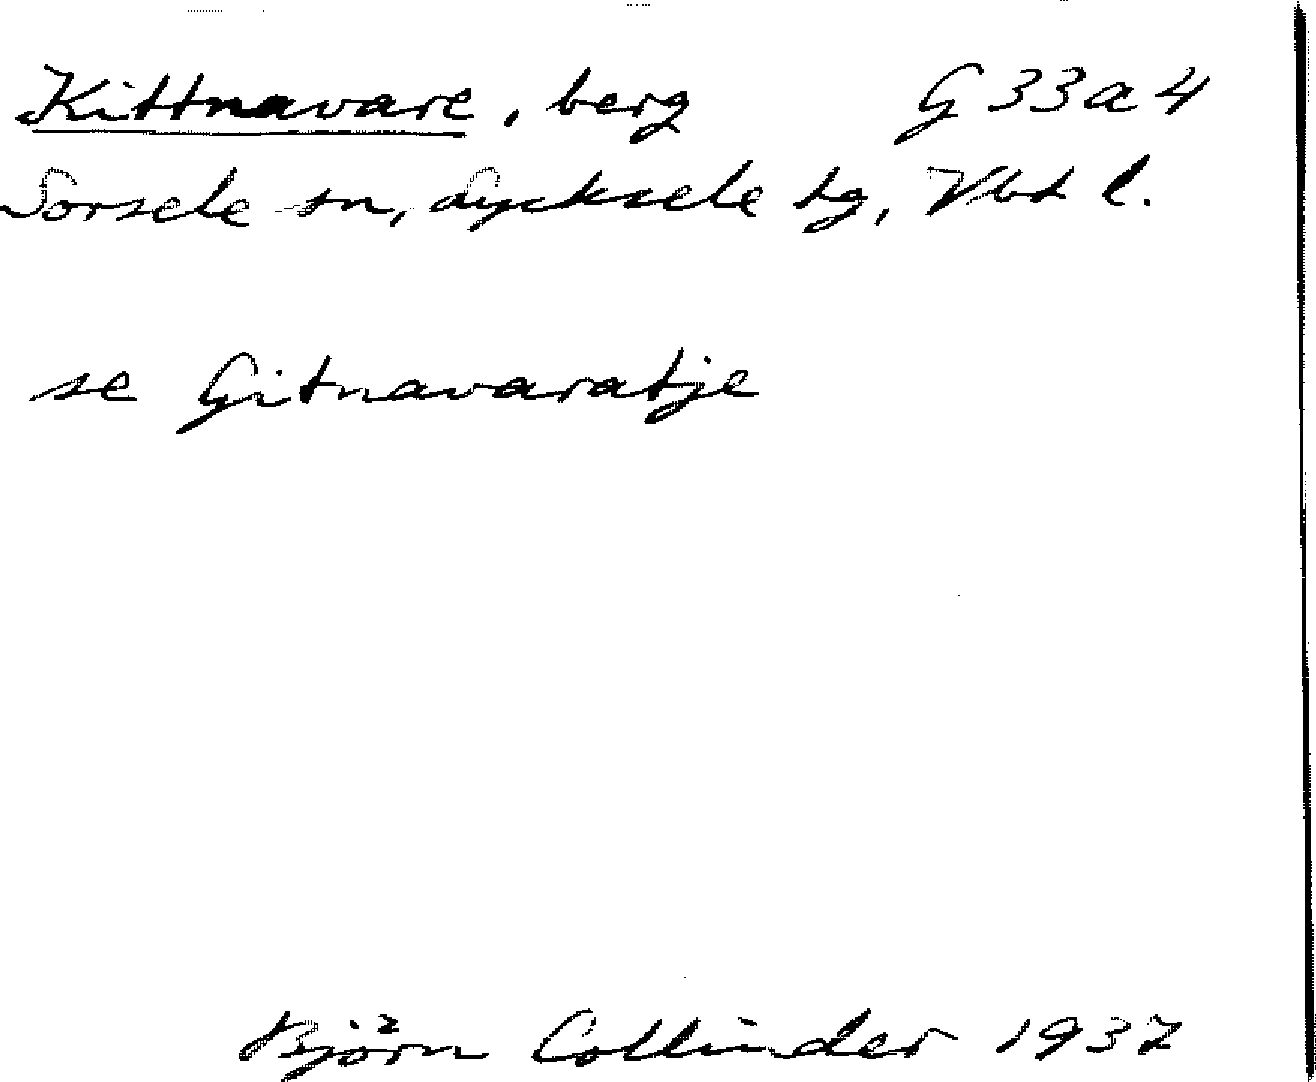 Kittnavare, berg G 33 a 4
Sorsele sn, Lycksele lg, Vbt l.
se Gitnavaratje
Björn Collinder 1937